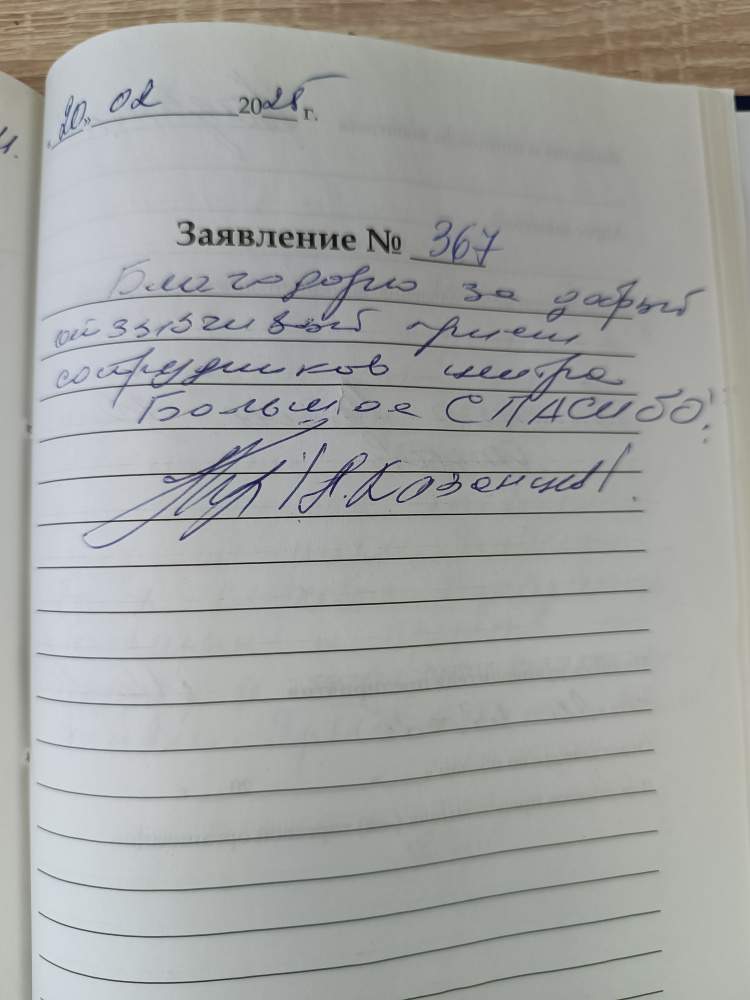 «20» 02 2025 г.
Заявление № 367
Благодарю за добрый
отзывчивый прием
сотрудников центра
Большое СПАСИБО!